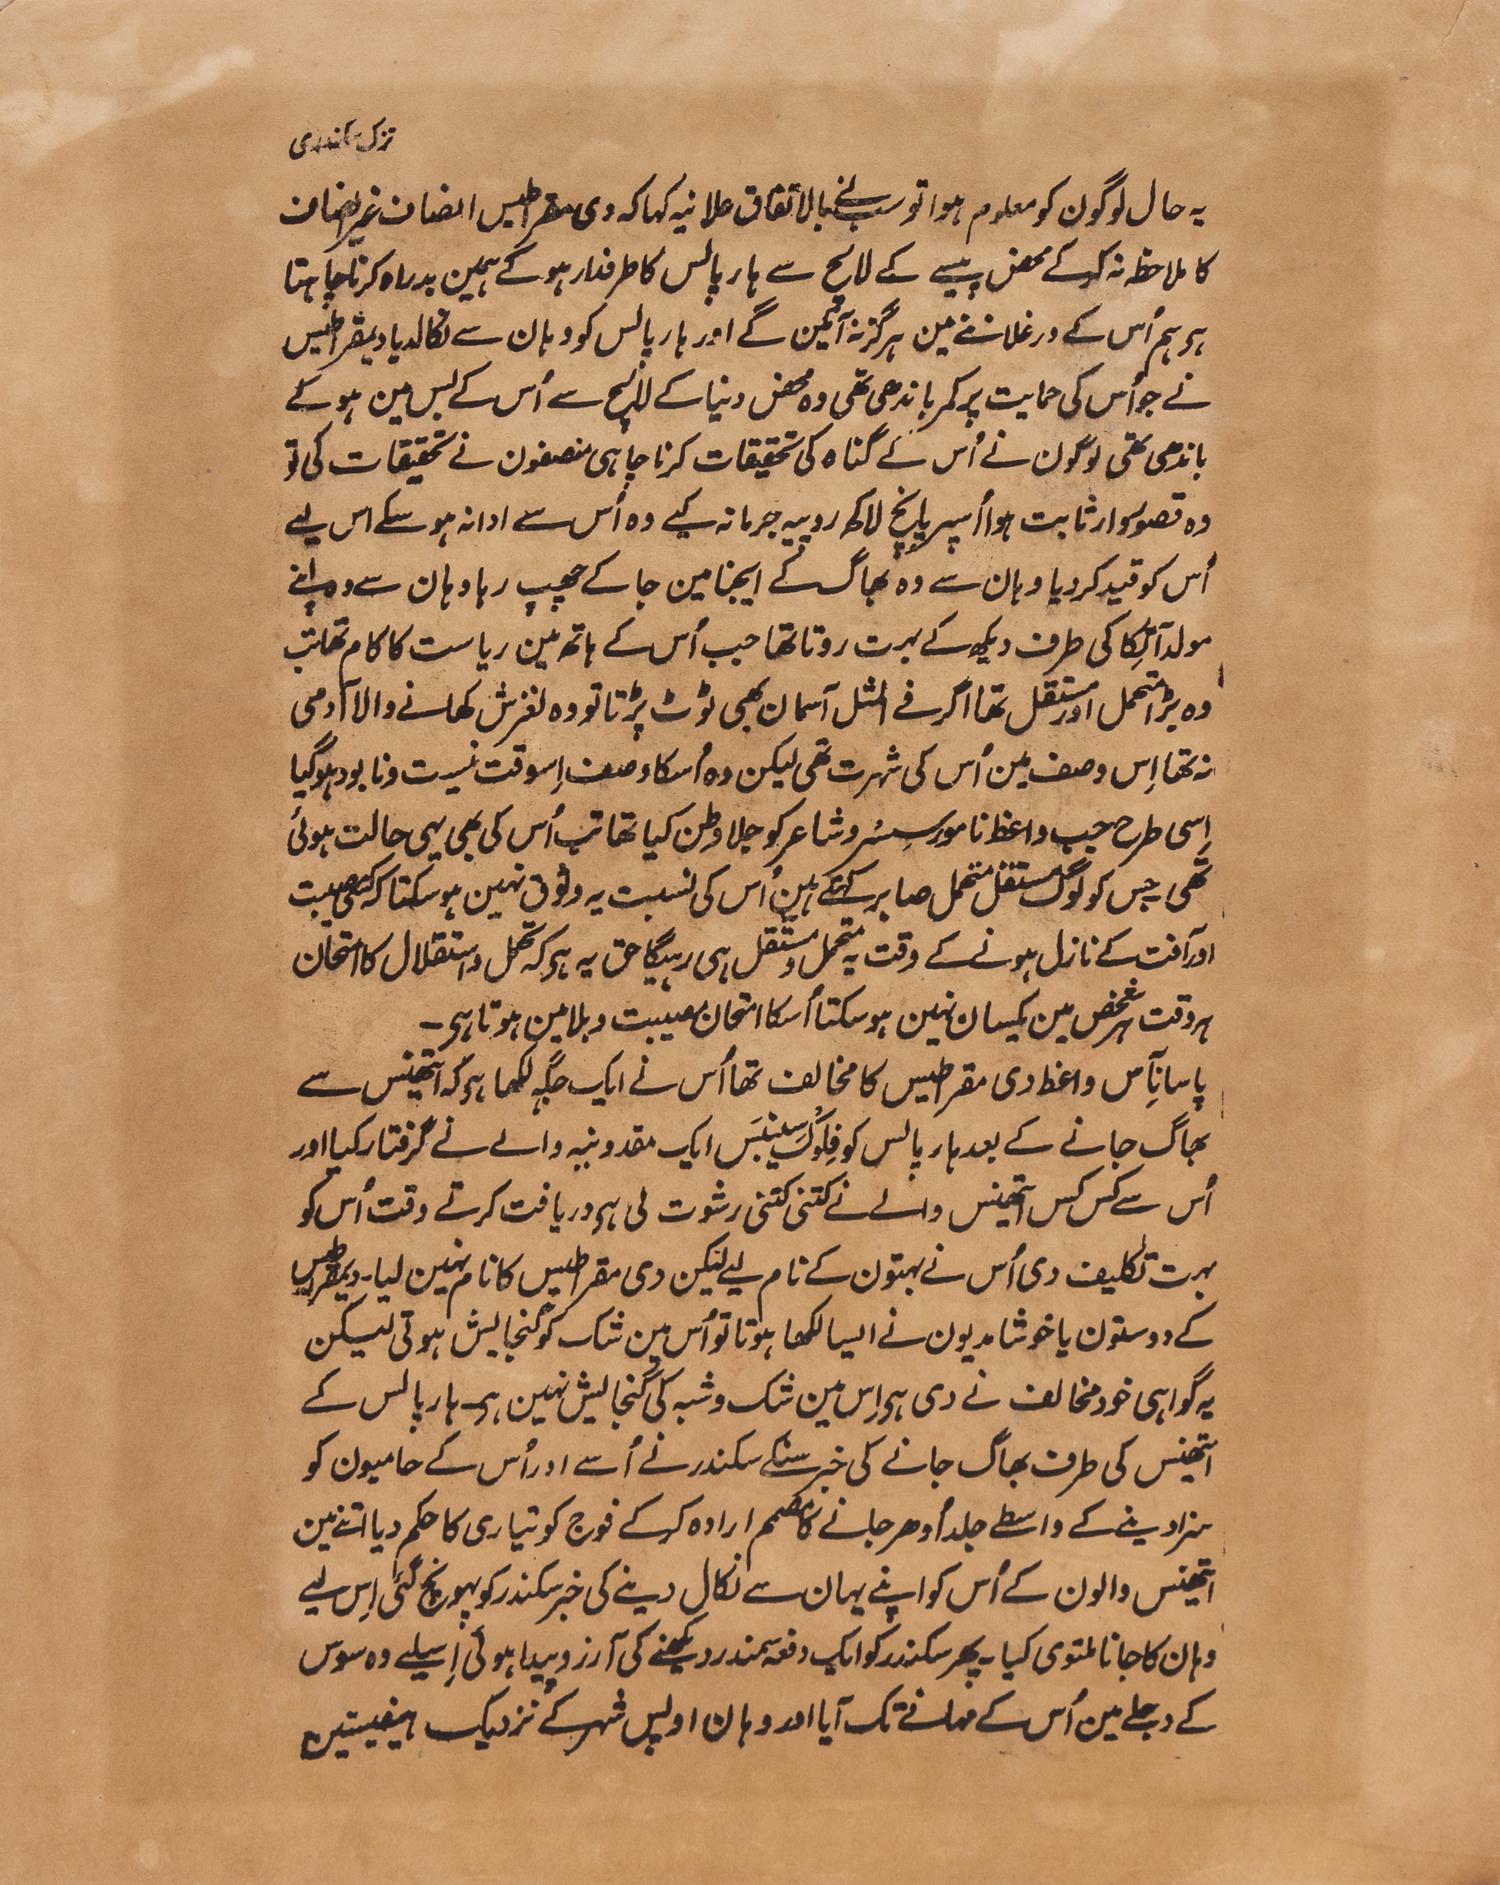 تزک سکندری
یہ حال لوگون کو معلوم ہوا تو سب نے بالاتفاق علانیہ کہا کہ دی مقراطیس انصاف غیر انصاف
کا ملاحظہ نہ کرکے محض پیسے کے لالچ سے ہارپالس کا طرفدار ہوکے ہمین بدراہ کرنا چاہتا
ہر ہم اُس کے ورغلاننے مین ہرگز نہ آئین گے اور ہارپالس کو وہان سے نکالدیا دیمقراطیس
نے جو اُس کی حمایت پر کمر باندھی تھی وہ محض دنیا کے لالچ سے اُس کے بس مین ہوکے
باندھی تھی لوگون نے اُس کے گناہ کی تحقیقات کرنا چاہی منصفون نے تحقیقات کی تو
وہ قصوروار ثابت ہوا اُسپر پانچ لاکھ روپیہ جرمانہ کیے وہ اُس سے ادا نہ ہوسکے اس لیے
اُس کو قید کردیا وہان سے وہ بھاگ کے ایجنا مین جاکے چھپ رہا وہان سے وہ اپنے
مولد آٹکا کی طرف دیکھ کے بہت روتا تھا جب اُس کے ہاتھ مین ریاست کا کام تھا تب
وہ بڑا متحمل اور مستقل تھا اگر فے المثل آسمان بھی ٹوٹ پڑتا تو وہ لغزش کھانے والا آدمی
نہ تھا اِس وصف مین اُس کی شہرت تھی لیکن وہ اُسکا وصف اِسوقت نیست ونابود ہوگیا
اِسی طرح جب واعظ نامور سِسرو شاعر کو جلاوطن کیا تھا تب اُس کی بھی یہی حالت ہوئی
تھی۔ جس کو لوگ مستقل متحمل صابر کہتے ہین اُس کی نسبت یہ وثوق نہین ہوسکتا کہ کسی مصیبت
اور آفت کے نازل ہونے کے وقت یہ متحمل و مستقل ہی رہیگا حق یہ ہر کہ تحمل و استقلال کا امتحان
ہر وقت ہر شخص مین یکسان نہین ہوسکتا اُسکا امتحان مصیبت و بلا مین ہوتا ہر۔
پاسانِآس واعظ دی مقراطیس کا مخالف تھا اُس نے ایک جگہ لکھا ہر کہ اتھینس سے
بھاگ جانے کے بعد ہارپالس کو فِلوک سینیس ایک مقدونیہ والے نے گرفتار کیا اور
اُس سے کس کس اتھینس والے نے کتنی کتنی رشوت لی ہر دریافت کرتے وقت اُس کو
بہت تکلیف دی اُس نے بہتون کے نام لیے لیکن دی مقراطیس کا نام نہین لیا۔ دیمقراطیس
کے دوستون یا خوشامدیون نے ایسا لکھا ہوتا تو اُس مین شک کو گنجایش ہوتی لیکن
یہ گواہی خود مخالف نے دی ہر اِس مین شک و شبہ کی گنجایش نہین ہر۔ ہارپالس کے
اتھینس کی طرف بھاگ جانے کی خبر سنکے سکندر نے اُسے اور اُس کے حامیون کو
سزا دینے کے واسطے جلد اُدھر جانے کا مصمم ارادہ کرکے فوج کو تیاری کا حکم دیا اتنے مین
اتھینس والون کے اُس کو اپنے یہان سے نکال دینے کی خبر سکندر کو پہونچ گئی اِس لیے
وہان کا جانا ملتوی کیا۔ پھر سکندر کو ایک دفعہ سمندر دیکھنے کی آرزو پیدا ہوئی اِسیلیے وہ سوس
کے دجلے مین اُس کے مہانے تک آیا اور وہان اوپس شہر کے نزدیک ہیفیسٹین